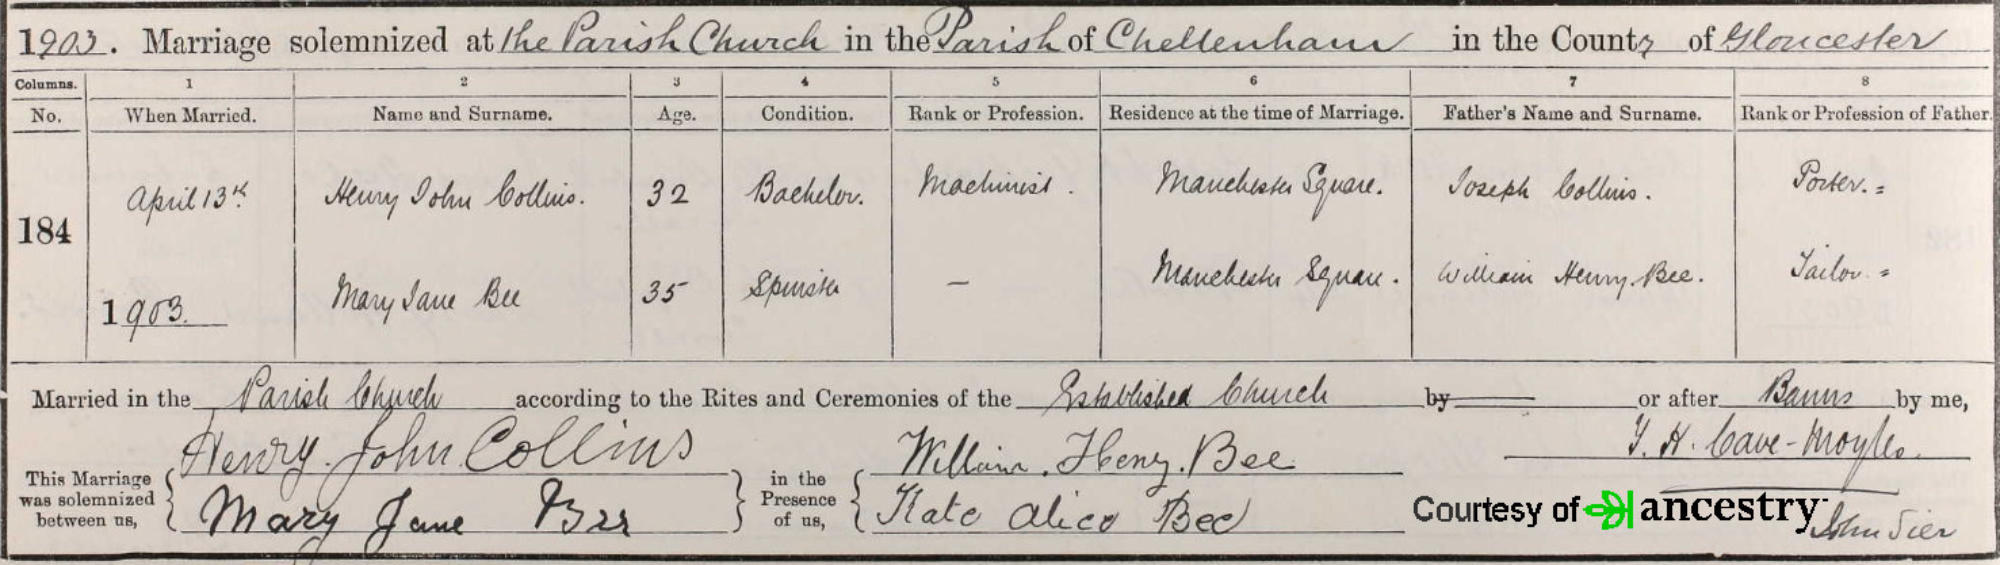 1903. Marriage solemnized at the Parish Church in the Parish of Cheltenham in the County of Gloucester
Columns. 1 2 3 4 5 6 7 8
No. When Married. Name and Surname. Age. Condition. Rank or Profession. Residence at the time of Marriage. Father's Name and Surname. Rank or Profession of Father.
April 13th Henry John Collins. 32 Bachelor. Machinist. Manchester Square. Joseph Collins. Porter.
184
1903. Mary Jane Bee 35 Spinster — Manchester Square. William Henry Bee. Tailor.
Married in the Parish Church according to the Rites and Ceremonies of the Established Church by or after Banns by me,
Henry John Collins William Henry Bee H. Cave-Moyles.
This Marriage was solemnized between us, in the Presence of us,
Mary Jane Bee Kate Alice Bee
Courtesy of ancestry
John Sier